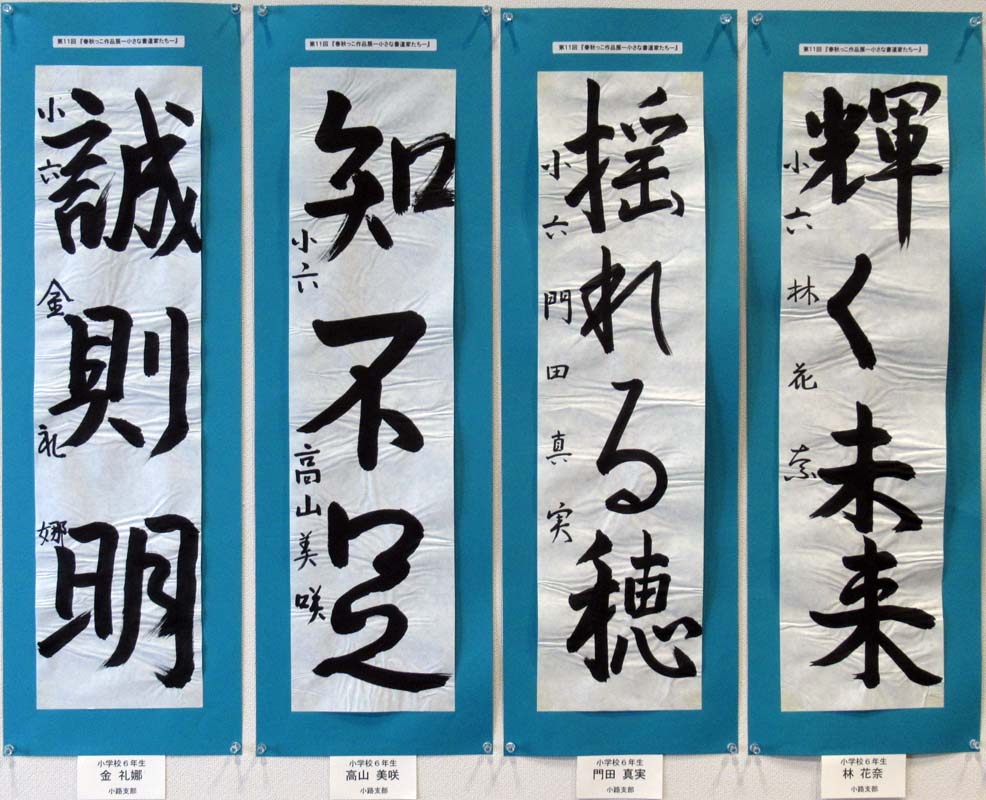 第11回 『春秋っこ作品展ー小さな書道家たちー』
誠則明
小六 金礼娜
小学校6年生
金 礼娜
小路支部
第11回 『春秋っこ作品展ー小さな書道家たちー』
知不足
小六 高山美咲
小学校6年生
高山 美咲
小路支部
第11回 『春秋っこ作品展ー小さな書道家たちー』
揺れる穂
小六 門田真実
小学校6年生
門田 真実
小路支部
第11回 『春秋っこ作品展ー小さな書道家たちー』
輝く未来
小六 林花奈
小学校6年生
林 花奈
小路支部